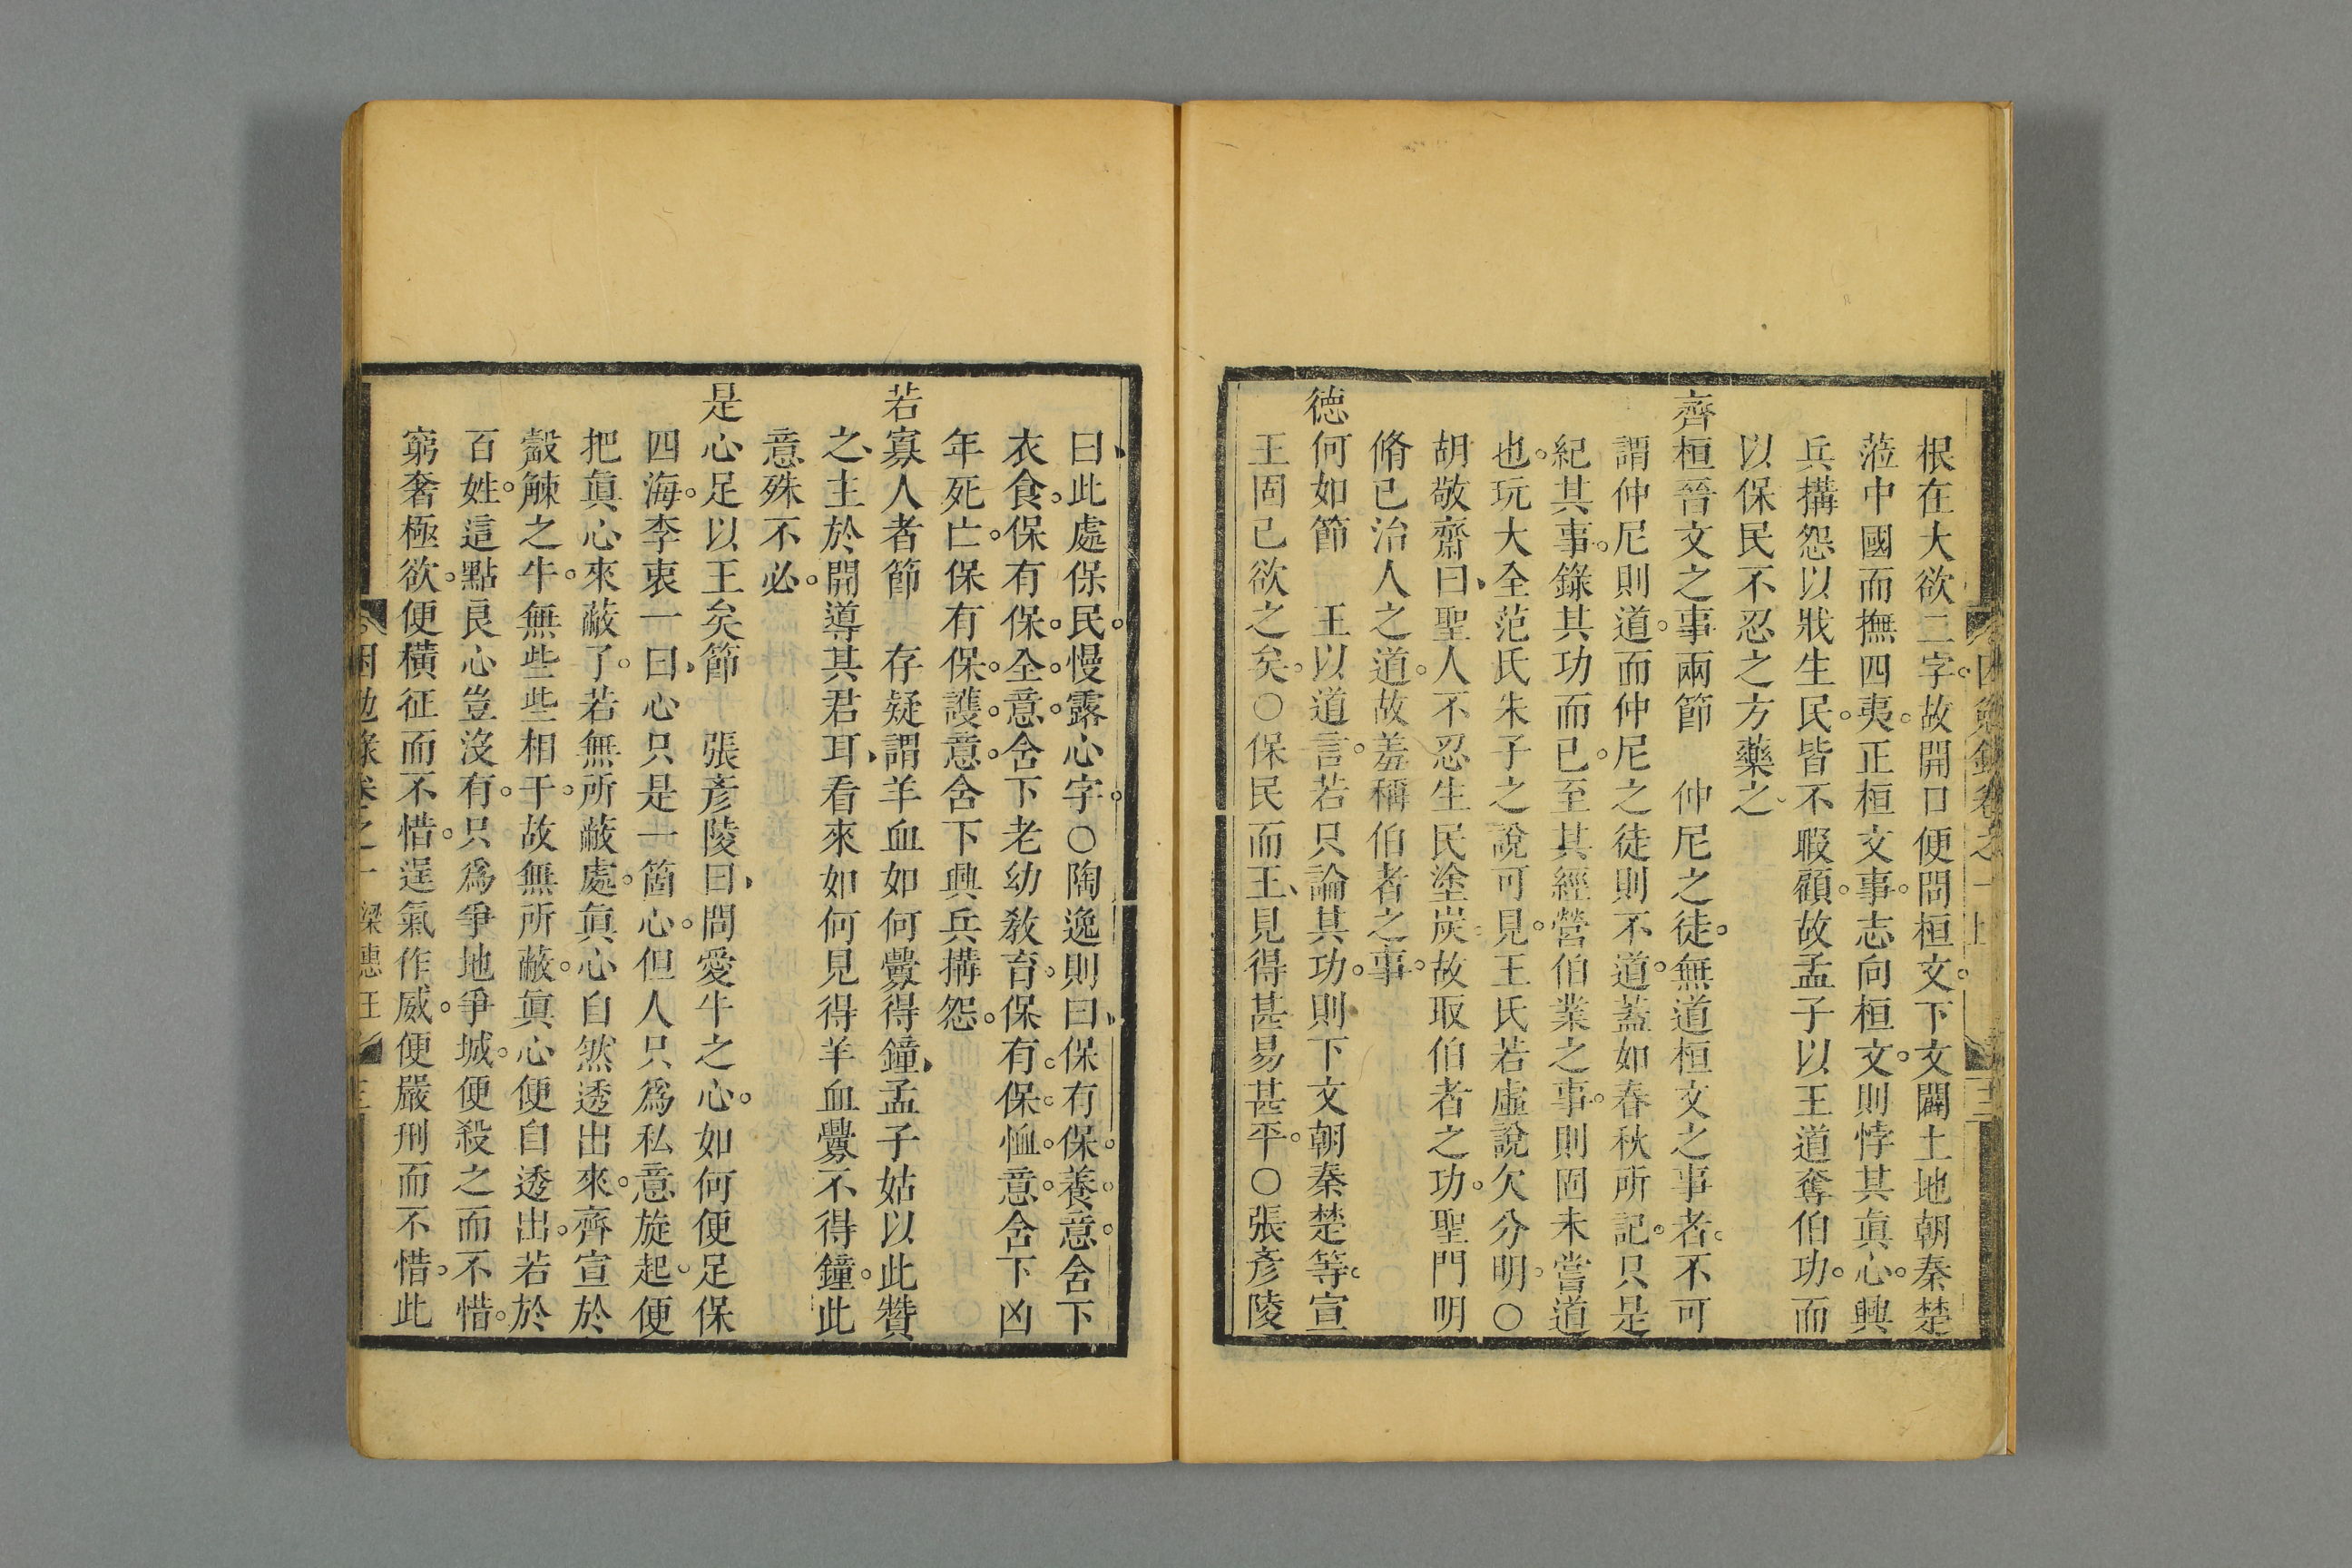 根在大欲二字。故開口便問桓文。下文闢土地朝秦楚
蒞中國而撫四夷。正桓文事。志向桓文。則悖其眞心。興
兵搆怨以戕生民。皆不暇顧。故孟子以王道奪伯功。而
以保民不忍之方藥之
齊桓晉文之事兩節　仲尼之徒。無道桓文之事者。不可
謂仲尼則道。而仲尼之徒則不道。蓋如春秋所記。只是
紀其事。錄其功而已。至其經營伯業之事。則固未嘗道
也。玩大全范氏朱子之說可見。王氏若虛說欠分明。○
胡敬齋曰、聖人不忍生民塗炭。故取伯者之功。聖門明
脩已治人之道。故羞稱伯者之事。
德何如節　王以道言。若只論其功。則下文朝秦楚等。宣
王固已欲之矣。○保民而王、見得甚易甚平。○張彥陵
曰、此處保民。慢露心字。○陶逸則曰、保有保養意。含下
衣食。保有保全意。含下老幼敎育。保有保恤意。含下凶
年死亡。保有保護意。含下興兵搆怨。
若寡人者節　存疑謂羊血如何釁得鐘、孟子姑以此贊
之、主於開導其君耳、看來如何見得羊血釁不得鐘。此
意殊不必。
是心足以王矣節　張彥陵曰、問愛牛之心。如何便足保
四海。李衷一曰、心只是一箇心。但人只爲私意旋起。便
把眞心來蔽了。若無所蔽處。眞心自然透出來。齊宣於
觳觫之牛。無些些相干。故無所蔽。眞心便自透出。若於
百姓。這點良心豈沒有。只爲爭地爭城。便殺之而不惜。
窮奢極欲。便橫征而不惜。逞氣作威。便嚴刑而不惜。此
困勉錄卷之一　梁惠王　三